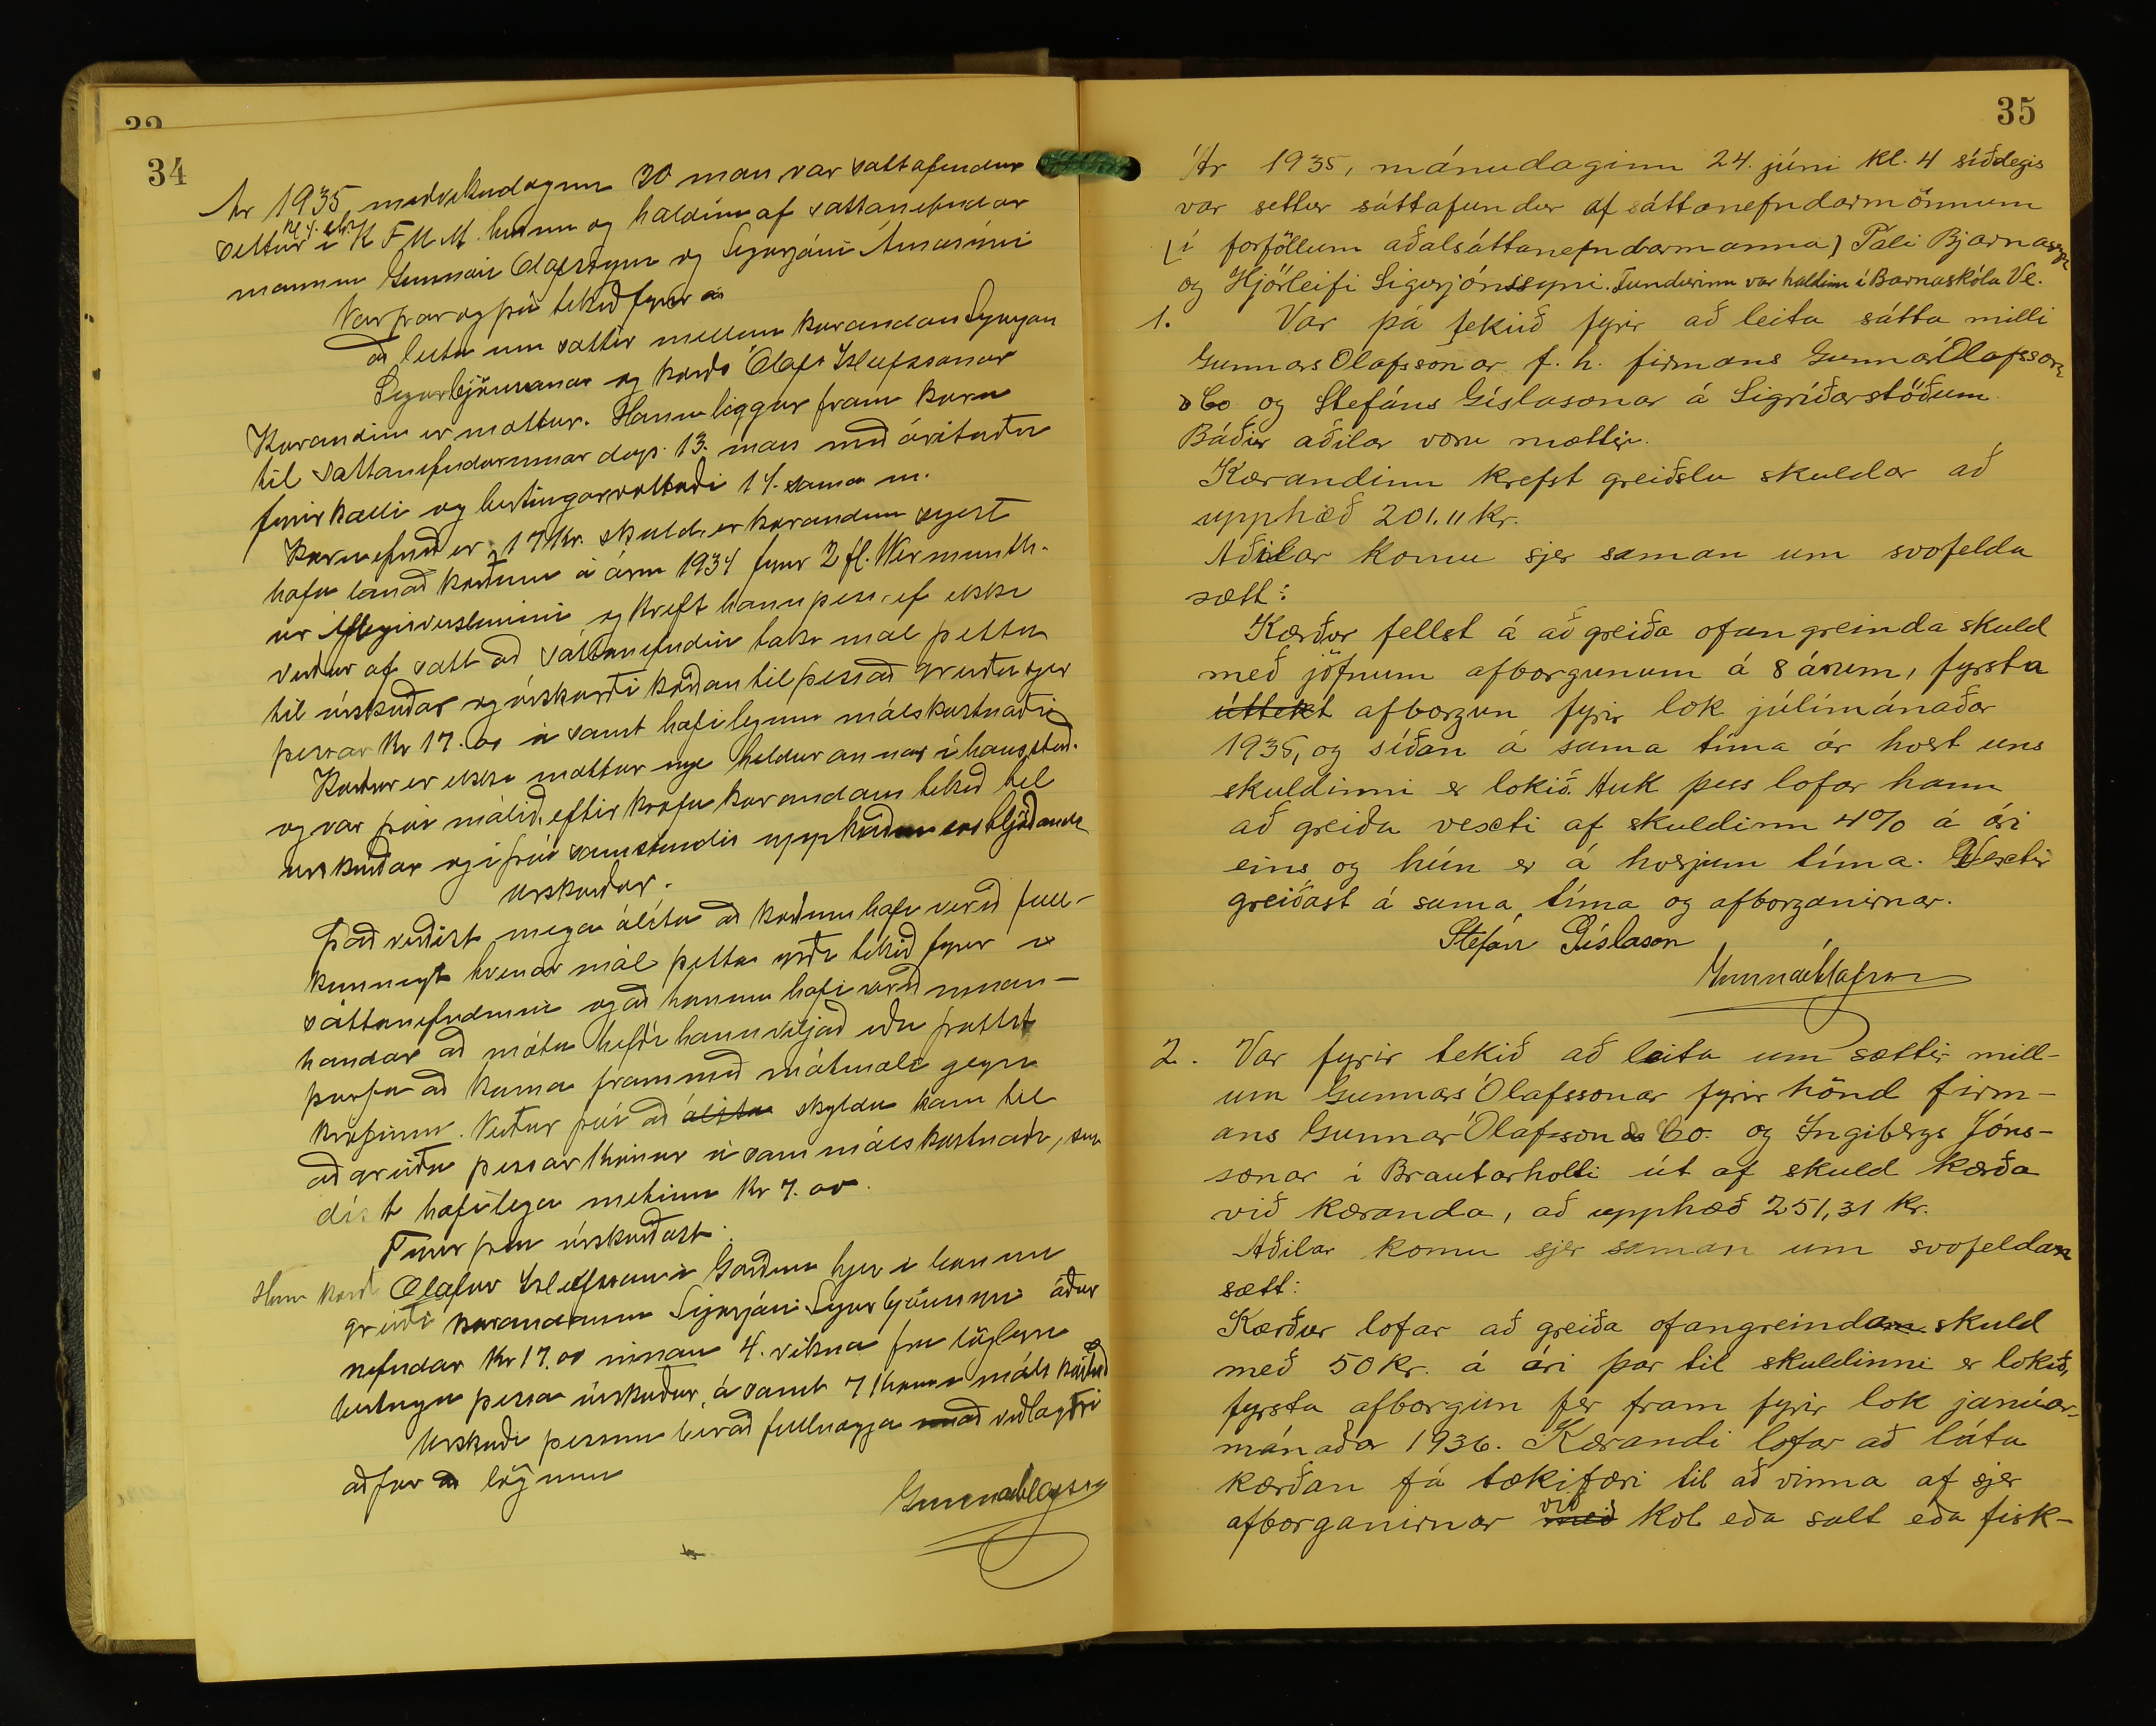 32
34
Ár 1935 miðvikudaginn 20 mars var sáttafundur
kl 4. e.h.
settur í K F U M. húsinu og haldinn af sáttanefndar
mönnum Gunnari Ólafssyni og Sigurjóni Árnasyni
Var þar og þá tekið fyrir
að leita um sættir millum kærandans Sigurjóns
Sigurbjörnssonar og kærðs Ólafs Ísleifssonar
Kærandinn er mættur. Hann leggur fram kæru
til sáttanefndarinnar dags. 13. mars með árituðu
fyrirkalli og birtingarvottorði 14. sama m.
Kæruefnið er 17 kr. skuld, er kærandinn segist
hafa lánað kærðum á árinu 1934 fyrir 2 fl. Wermuth.
úr Áfengisversluninni og krefst hann þess, ef ekki
verður af sátt að sáttanefndin taki mál þetta
til úrskurðar og úrskurði kærðan til þess að greiða sjer
þessar kr 17.00 á samt hæfilegum málskostnaði
Kærður er ekki mættur nje heldur annar í hans stað.
og var því málið, eftir kröfu kærandans tekið til
úrskurðar og í því samstundis uppkveðinn svohljóðandi
úrskurður.
Það virðist mega álíta að kærðum hafi verið full-
kunnugt hvenær mál þetta yrði tekið fyrir í
sáttanefndinni og að honum hafi verið innan-
handar að mæta hefði hann viljað eða þóttst
þurfa að koma fram með mótmæli gegn
kröfunni. Verður því að álíta skyldu hans til
að greiða þessar krónur á samt málskostnaði, sem
hæfilega metinn kr 7.00.
Fyrir því úrskurðast:
Hinn kærði Ólafur Ísleifsson í Görðum hjer í bænum
greiði kærandanum Sigurjóni Sigurbjörnssyni áður
nefndar kr 17.00 innan 4. vikna frá löglegri
birtingu þessa úrskurðar, á samt 7 króna málskostnað
Úrskurði þessum ber að fullnægja með viðlagðri
aðför að lögum
Gunnar Ólafsson
35
Ár 1935, mánudaginn 24. júni kl. 4 síðdegis
var settur sáttafundur af sáttanefndarmönnum
(í forföllum aðalsáttanefndarmanna) Páli Bjarnasyni
og Hjörleifi Sigurjónssyni. Fundurinn var haldinn í Barnaskóla Ve.
1. Var þá tekið fyrir að leita sátta milli
Gunnars Olafssonar f. h. firmans Gunnar Olafsson
& Co og Stefáns Gíslasonar á Sigríðarstöðum.
Báðir aðilar voru mættir.
Kærandinn krefst greiðslu skuldar að
upphæð 201.11 kr.
Aðilar komu sjer saman um svofelda
sætt:
Kærður fellst á að greiða ofangreinda skuld
með jöfnum afborgunum á 8 árum, fyrsta
úttekt afborgun fyrir lok júlímánaðar
1935, og síðan á sama tíma ár hvert uns
skuldinni er lokið. Auk þess lofar hann
að greiða vexti af skuldinni 4% á ári
eins og hún er á hverjum tíma. Vextir
greiðast á sama tíma og afborganirnar.
Stefán Gíslason
Gunnar Ólafsson
2. Var fyrir tekið að leita um sættir mill-
um Gunnars Ólafssonar fyrir hönd firm-
ans Gunnar Ólafsson & Co. og Ingibergs Jóns-
sonar í Brautarholti út af skuld kærða
við kæranda, að upphæð 251,31 kr.
Aðilar komu sjer saman um svofeldan
sætt:
Kærður lofar að greiða ofangreindan skuld
með 50 kr. á ári þar til skuldinni er lokið,
fyrsta afborgun fer fram fyrir lok janúar-
mánaðar 1936. Kærandi lofar að láta
kærðan fá tækifæri til að vinna af sjer
við
afborganirnar með kol eða salt eða fisk-